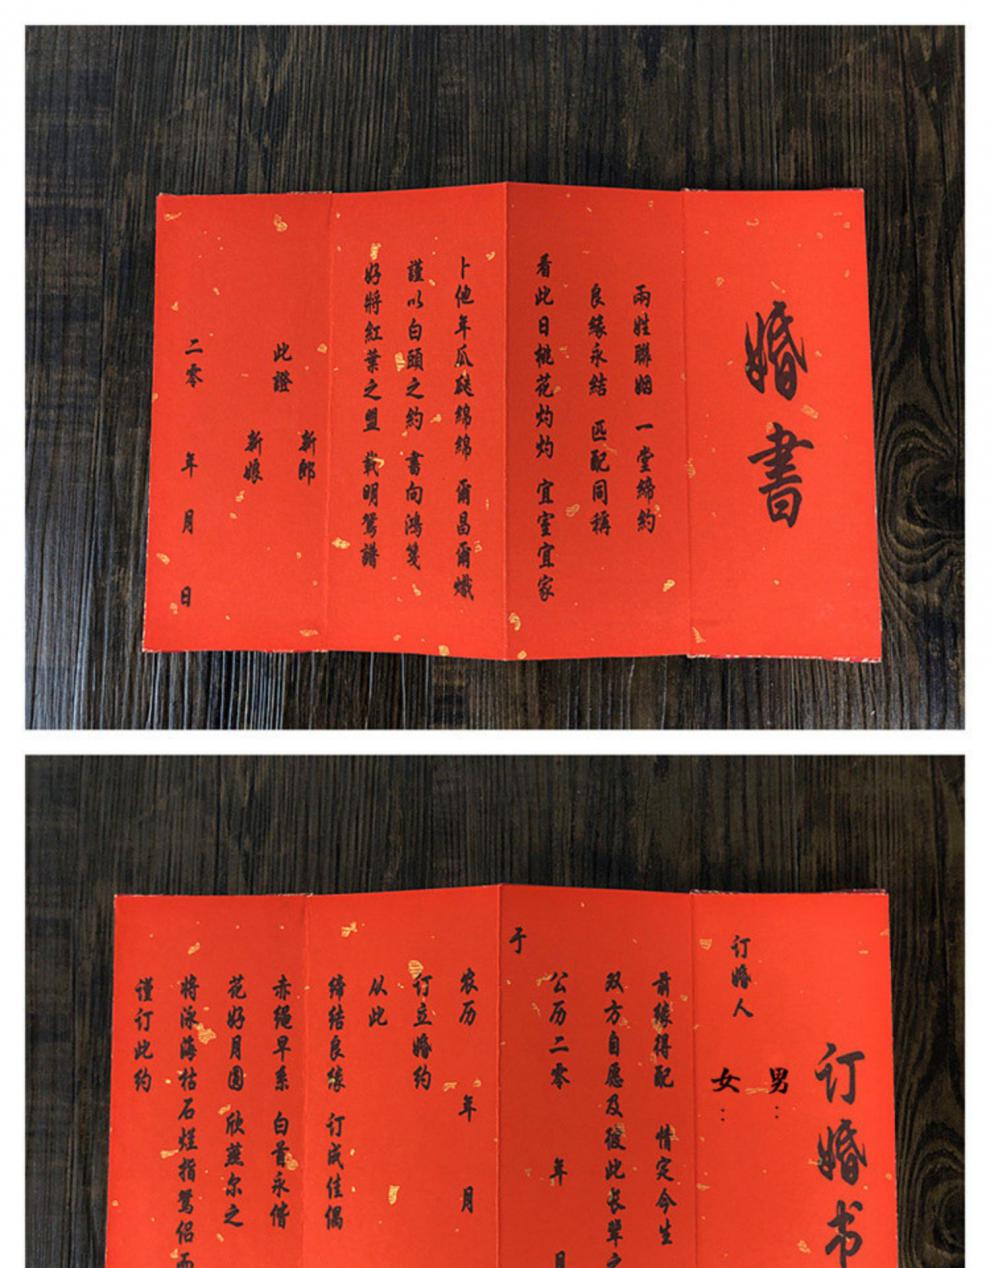 婚書
兩姓聯姻 一堂締約
良緣永結 匹配同稱
看此日桃花灼灼 宜室宜家
卜他年瓜瓞綿綿 爾昌爾熾
謹以白頭之約 書向鴻箋
好將紅葉之盟 載明鴛譜
此證
新郎
新娘
二零 年 月 日
订婚书
订婚人
男：
女：
前缘得配 情定今生
双方自愿及彼此长辈之
于
公历二零 年 月
农历 年 月
订立婚约
从此
缔结良缘 订成佳偶
赤绳早系 白首永偕
花好月圆 欣燕尔之
将泳海枯石烂指鸳侣而
谨订此约